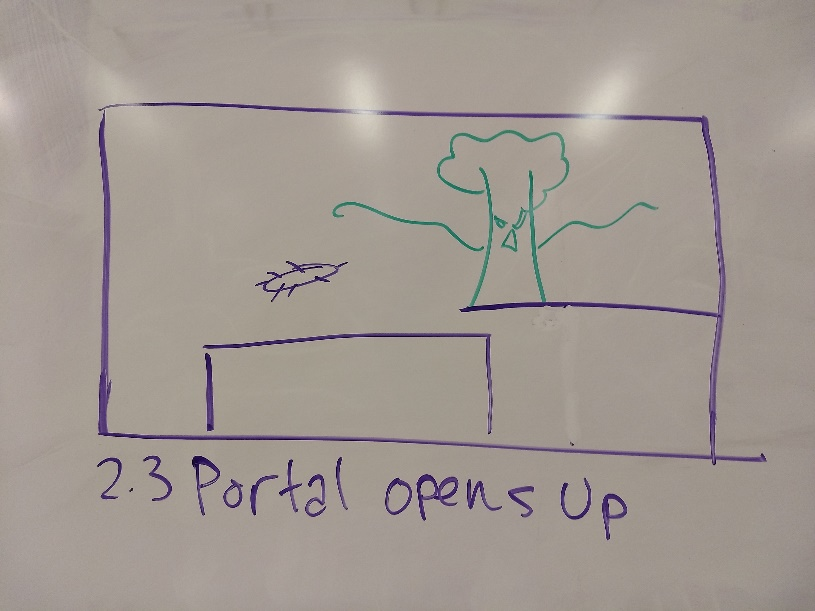 2.3 Portal opens Up